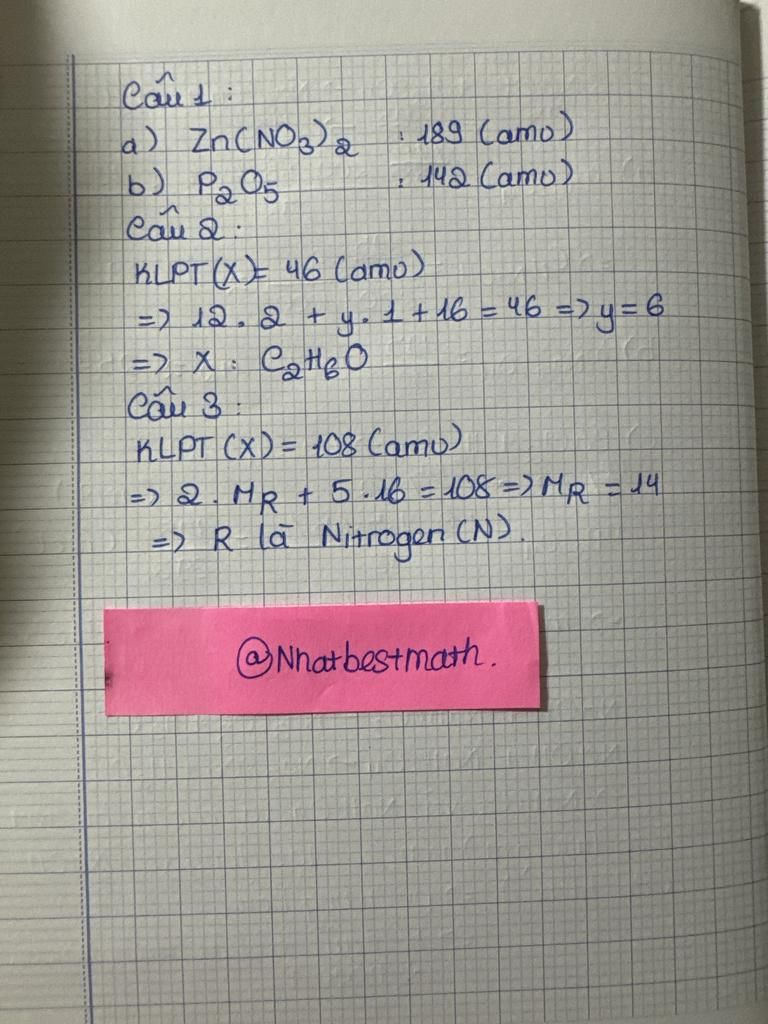 Câu 1 :
a) Zn(NO₃)₂ : 189 (amu)
b) P₂O₅ : 142 (amu)
Câu 2 :
KLPT(X)= 46 (amu)
=> 12. 2 + y. 1 + 16 = 46 => y = 6
=> X : C₂H₆O
Câu 3 :
KLPT (X) = 108 (amu)
=> 2. M_R + 5 .16 = 108 => M_R = 14
=> R là Nitrogen (N).
@Nhatbestmath.